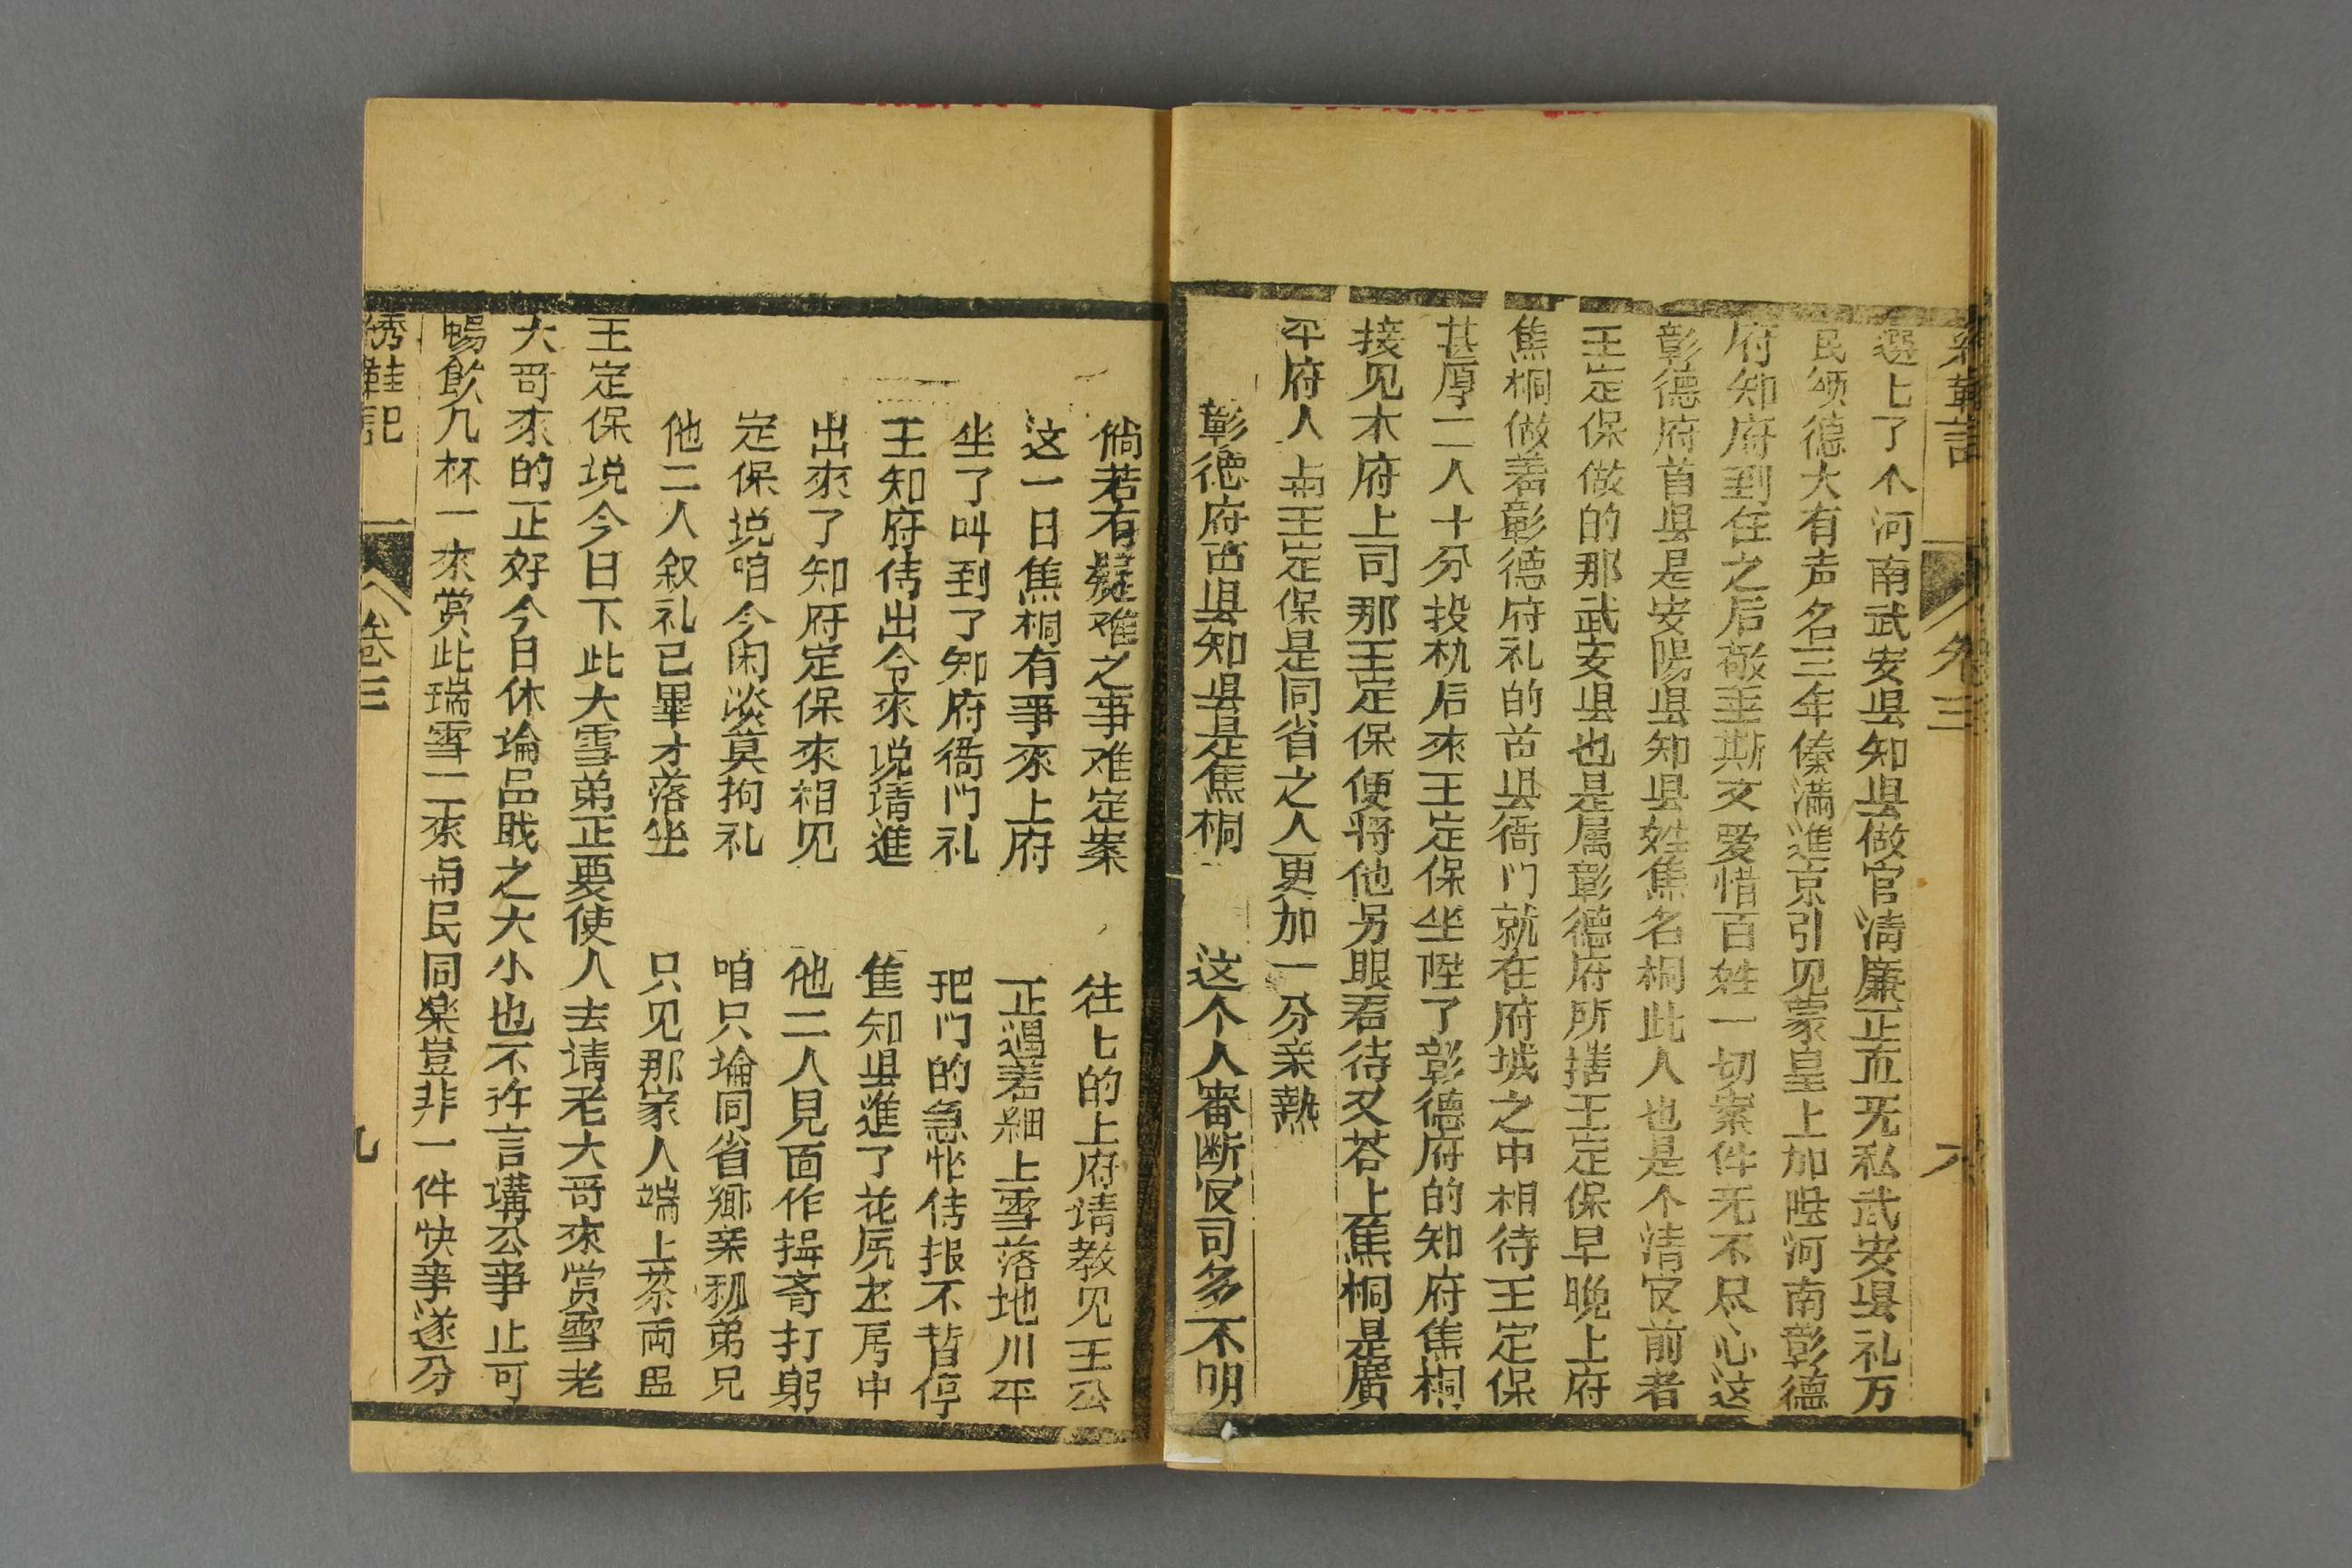 選上了个河南武安县知县做官清廉正直无私武安县礼万
民颂德大有声名三年俸滿進京引见蒙皇上加陞河南彰德
府知府到任之后敬重斯文爱惜百姓一切案件无不尽心这
彰德府首县是安陽县知县姓焦名桐此人也是个清官前者
王定保做的那武安县也是属彰德府所辖王定保早晚上府
焦桐做着彰德府礼的首县衙门就在府城之中相待王定保
甚厚二人十分投机后來王定保坐陞了彰德府的知府焦桐
接见本府上司那王定保便将他另眼看待又荅上焦桐是廣
平府人与王定保是同省之人更加一分亲熱
彰德府首县知县是焦桐 这个人審断官司多不明
倘若有疑难之事难定案 往上的上府请教见王公
这一日焦桐有事來上府 正遇着綑上雪落地川平
坐了叫到了知府衙门礼 把门的急忙传报不暂停
王知府传出令來说请進 焦知县進了花所书房中
出來了知府定保來相见 他二人見面作揖斎打躬
定保说咱今闲淡莫拘礼 咱只論同省鄉亲孤弟兄
他二人叙礼已畢才落坐 只见那家人端上茶両盅
王定保说今日下此大雪弟正要使人去请老大哥來赏雪老
大哥來的正好今日休論品戝之大小也不许言講公事止可
暢飲几杯一來赏此瑞雪二來与民同樂豈非一件快事遂分
綉鞋記 卷三 九